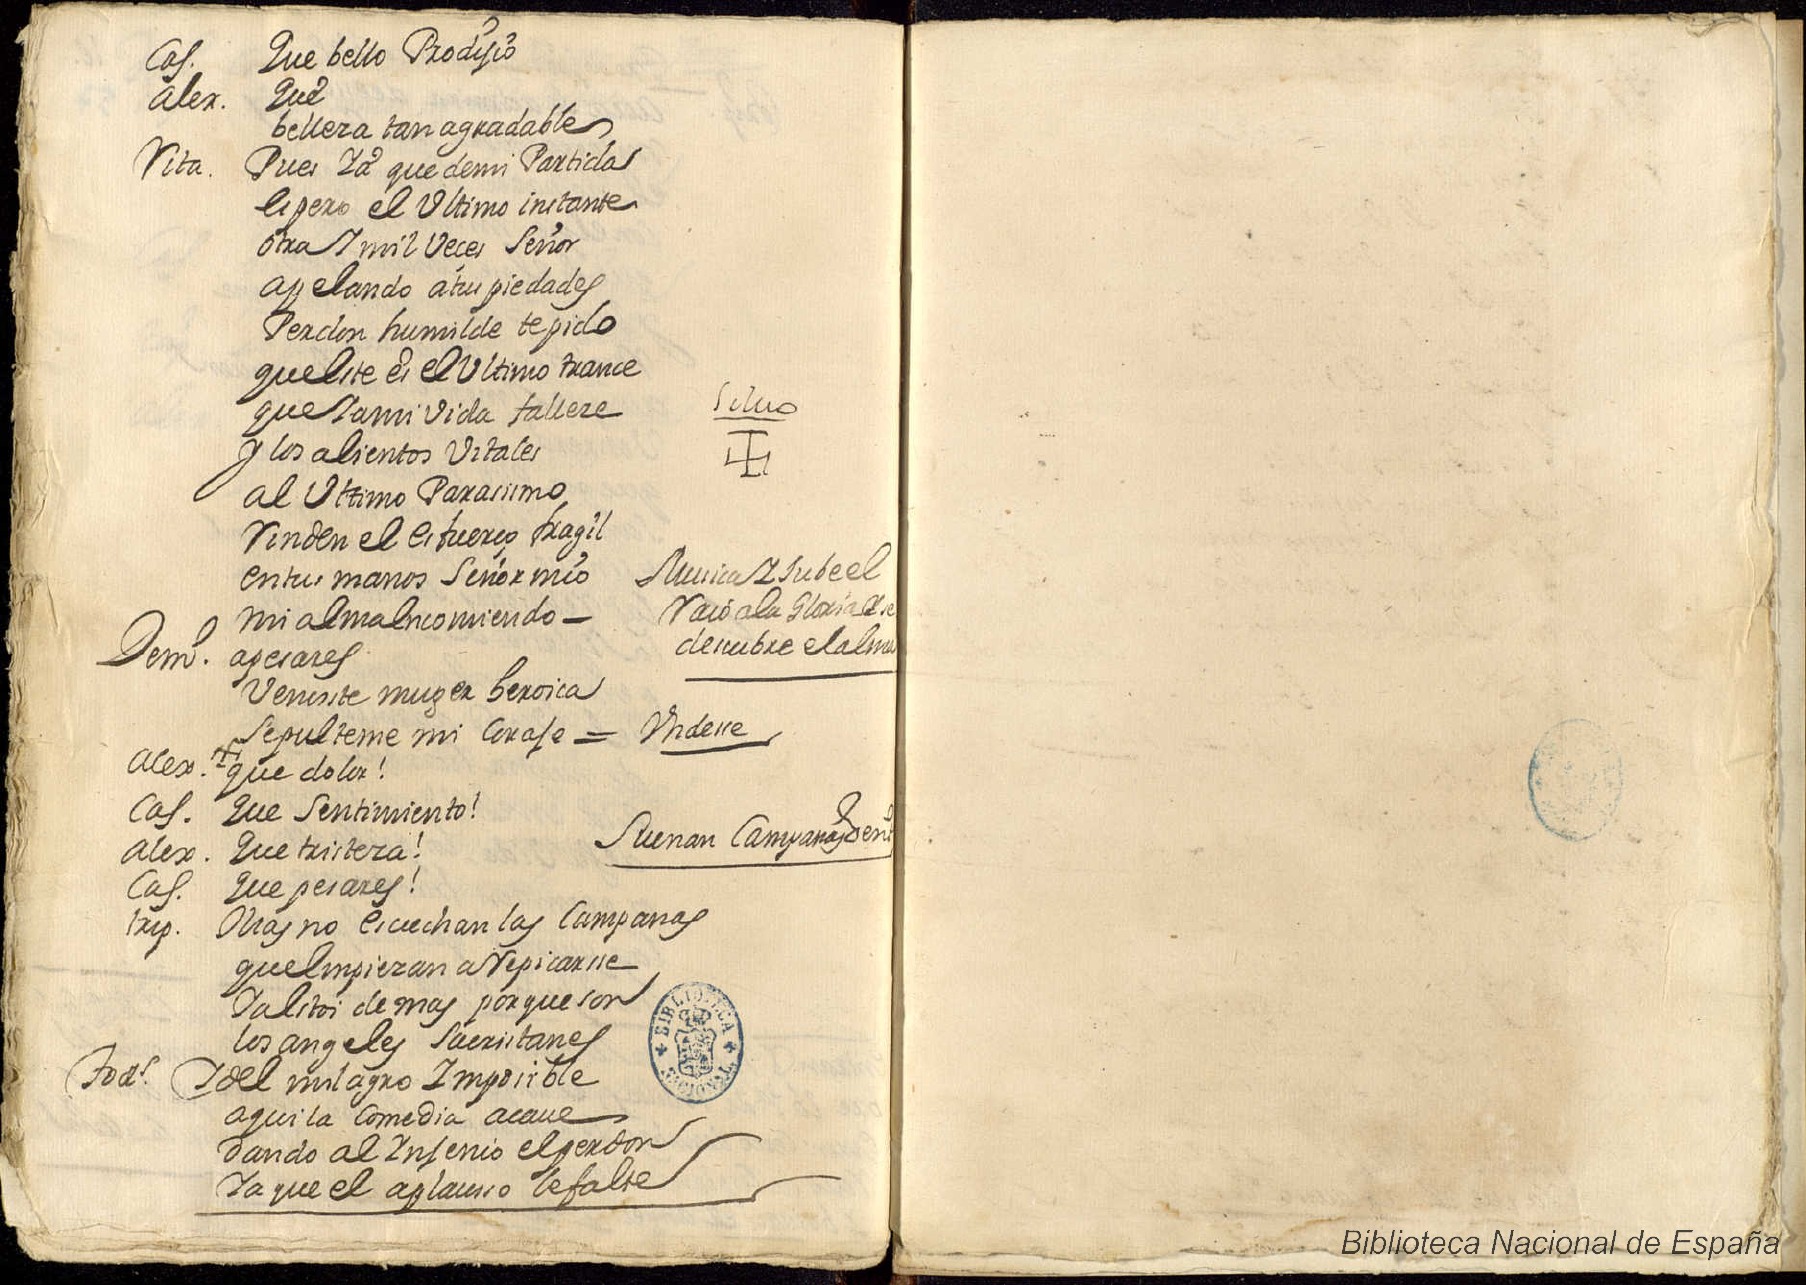 Cas. Que bello Prodijio
Alex. Que
belleza tan agradable
Vita. Pues Ya que demi Partida
espero el Ultimo instante
otra Y mil Veces Señor
apelando a tus piedades
Perdon humilde te pido
que este es el Ultimo trance
que Ya mi Vida falleze
y los alientos Vitales
al Ultimo Parasismo
Rinden el esfuerço fragil
en tus manos Señor mio
mi alma encomiendo
Musica Y sube el
a la Gloria Y se
descubre el alma
Demo. apesares
Venciste muger heroica
Sepulteme mi Coraje = Undese
Alex. que dolor!
Cas. Que Sentimiento!
Alex. Que tristeza!
Suenan Campanas dent
Cas. Que pesares!
trip. Mas no escuchan las Campanas
que empiezan a Repicarse
Ya estoi de mas porque son
los angeles Sacristanes
Tods. Y del milagro Imposible
aqui la Comedia acave
dando al Injenio el perdon
Ya que el aplauso le falte
BIBLIOTECA NACIONAL
Biblioteca Nacional de España